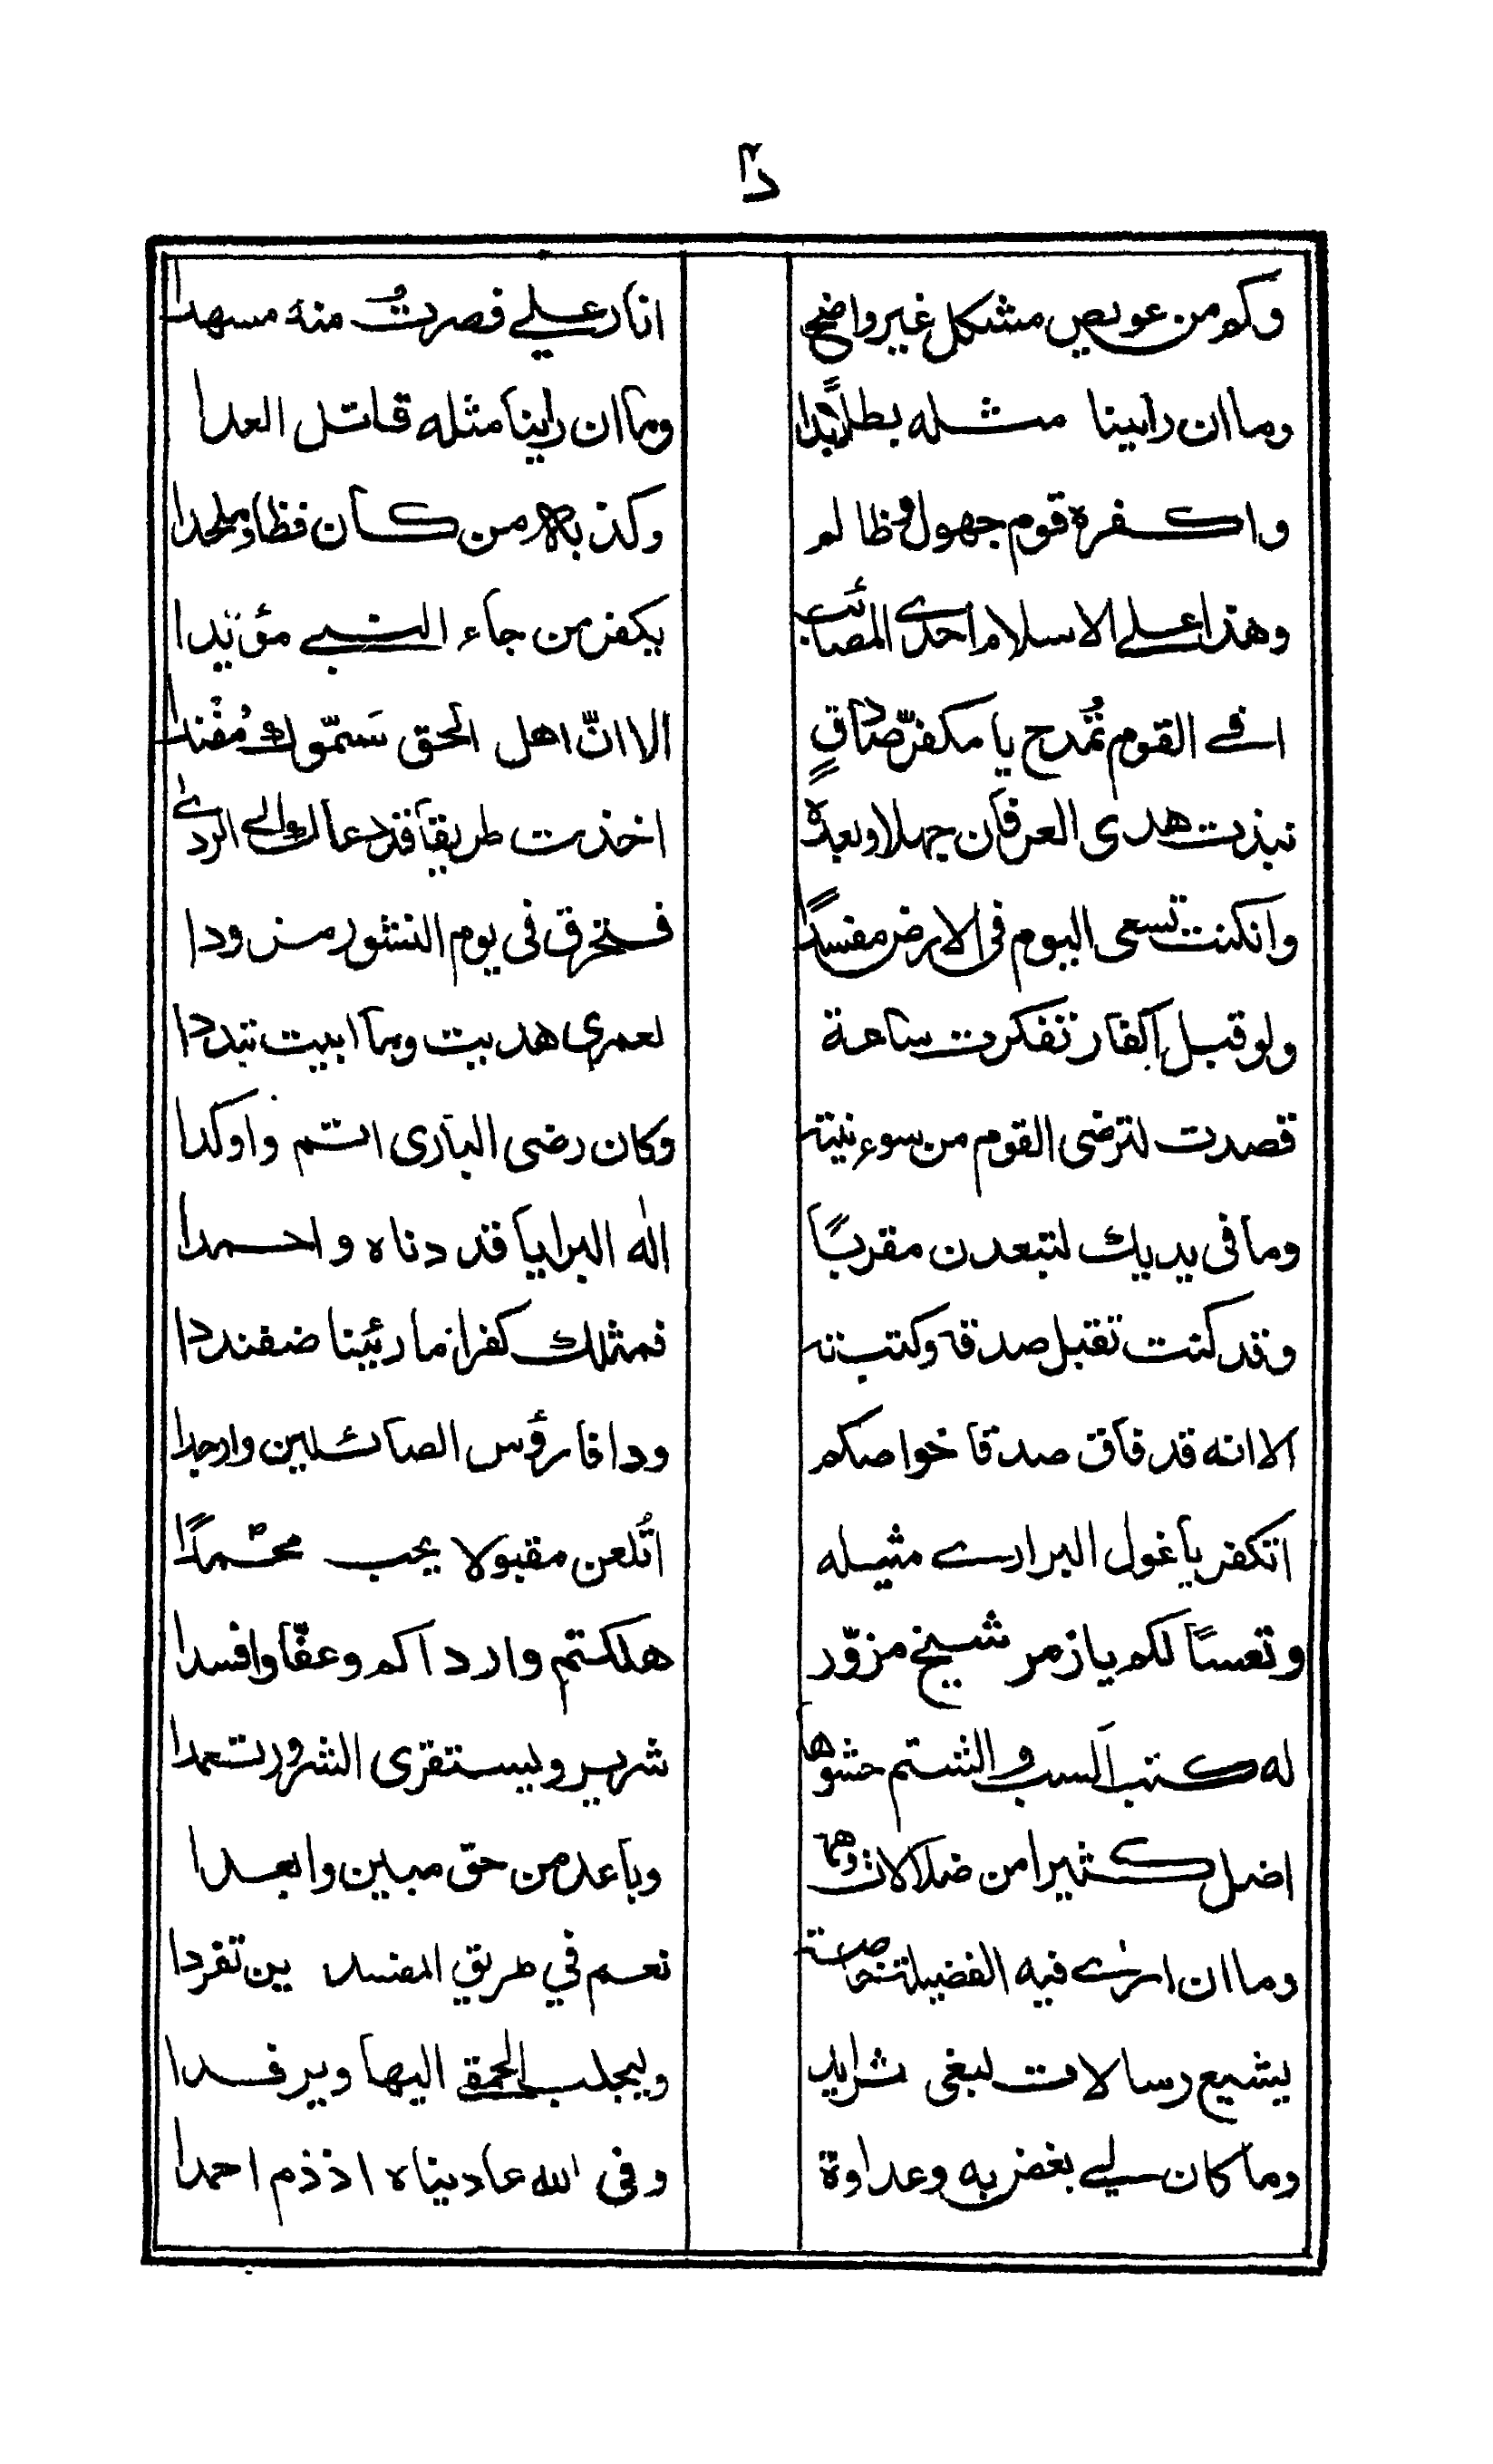 وكم من عويص مشكل غير واضح انار علي فصرتُ منه مسهدا
وما ان راَينا مثله بطلًا بدا وما ان راينا مثله قاتل العدا
واكفره قوم جهول وظالم وكذبه من كان فظا وملحدا
وهذا على الاسلام احدى المصائب يكفر من جاء النبي مؤيدا
افي القوم تُمدح يا مكفّر صادقٍ الا انّ اهل الحق سَمّوك مُفندا
نبذت هدى العرفان جهلا وبعده اخذت طريقا قد دعاك الى الردى
وان كنت تسعى اليوم في الارض مفسدًا فتحرق في يوم النشور مزودا
ولو قبل اكفار تفكرت ساعة لعمري هديت وما ابيت تبددا
قصدت لترضى القوم من سوء نيته وكان رضى الباري اتم واوكدا
وما في يديك لتبعدن مقربًا اله البرايا قد دناه واحمدا
وقد كنت تقبل صدقه وكتبته فمثلك كفرا ما رئينا ضفنددا
الا انه قد فاق صدقا خواصكم ودافا رؤس الصائلين وارجدا
اتكفر يا غول البراري مثيله اتُلعن مقبولا يحب محمدًا
وتعسًا لكم يا زمر شيخ مزوّر هلكتم وارداكم وعفّا وافسدا
له كتب السب والشتم حشوها شرير ويستقرى الشرور تعمدا
اضل كثيرا من ضلالات وهمه وباعد من حق مبين وابعدا
وما ان ارى فيه الفضيلة خاصة نعم في طريق المفسدين تفردا
يشيع رسالات لبغي ثرايد ويجلب الحمقى اليها ويرفدا
وما كان لي بغض به وعداوة وفي الله عاديناه اذ ذم احمدا